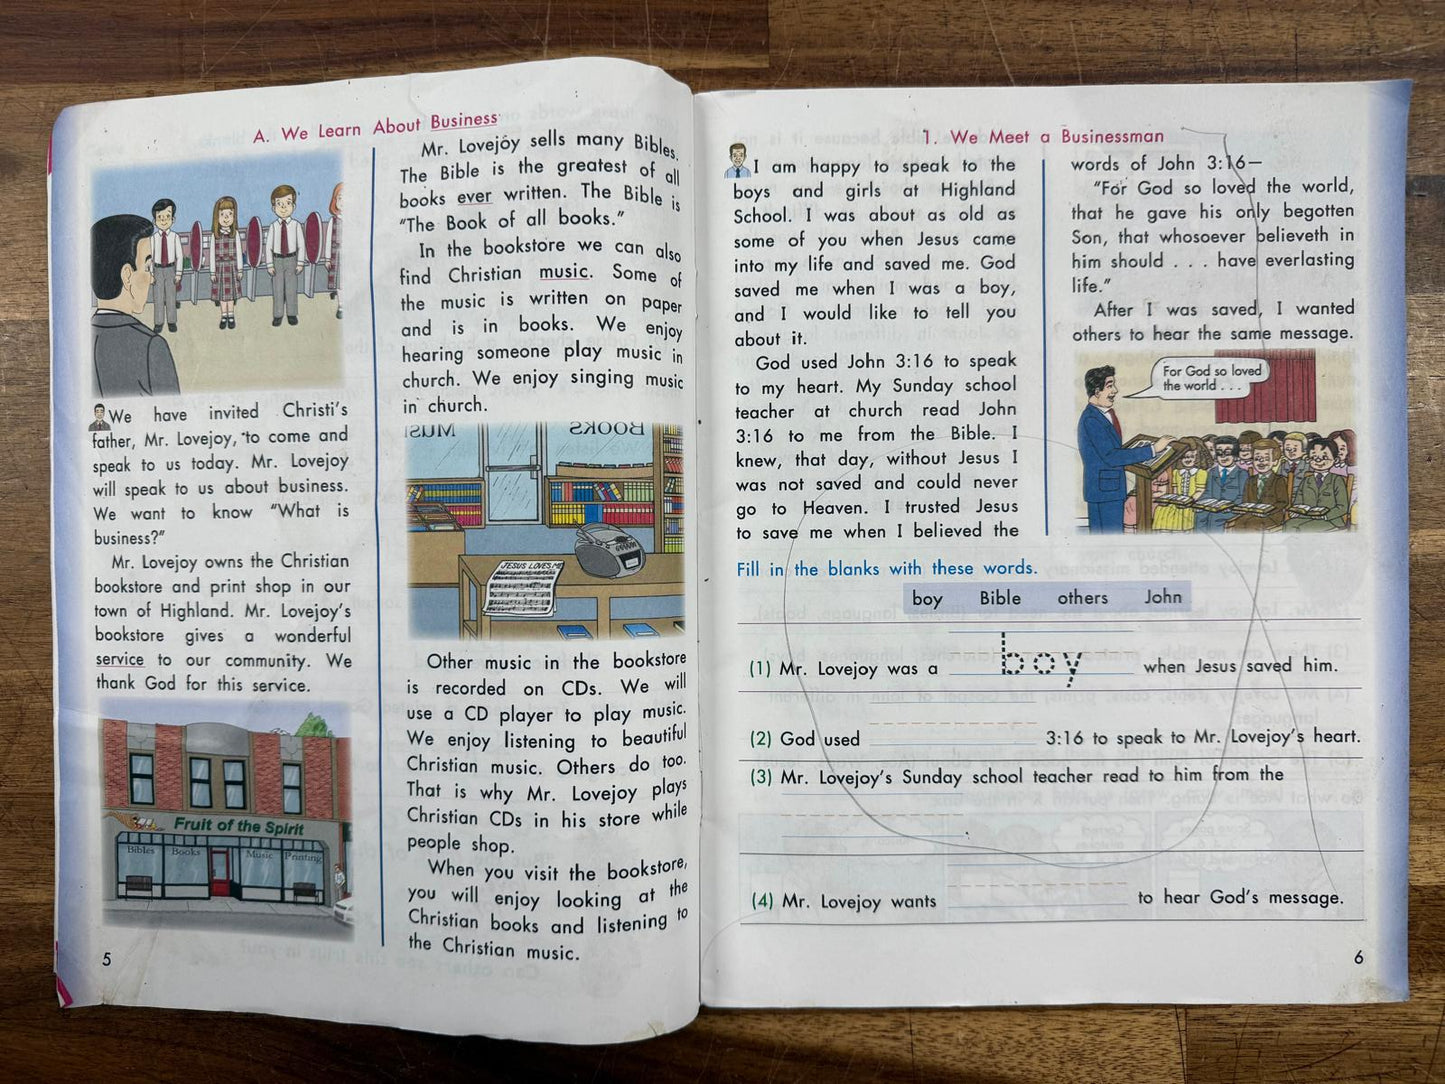 A. We Learn About Business
We have invited Christi's
father, Mr. Lovejoy, to come and
speak to us today. Mr. Lovejoy
will speak to us about business.
We want to know "What is
business?"
Mr. Lovejoy owns the Christian
bookstore and print shop in our
town of Highland. Mr. Lovejoy's
bookstore gives a wonderful
service to our community. We
thank God for this service.
Fruit of the Spirit
Bibles Books Music Printing
5
Mr. Lovejoy sells many Bibles.
The Bible is the greatest of all
books ever written. The Bible is
"The Book of all books."
In the bookstore we can also
find Christian music. Some of
the music is written on paper
and is in books. We enjoy
hearing someone play music in
church. We enjoy singing music
in church.
MUSIC BOOKS
JESUS LOVES ME
Other music in the bookstore
is recorded on CDs. We will
use a CD player to play music.
We enjoy listening to beautiful
Christian music. Others do too.
That is why Mr. Lovejoy plays
Christian CDs in his store while
people shop.
When you visit the bookstore,
you will enjoy looking at the
Christian books and listening to
the Christian music.
1. We Meet a Businessman
I am happy to speak to the
boys and girls at Highland
School. I was about as old as
some of you when Jesus came
into my life and saved me. God
saved me when I was a boy,
and I would like to tell you
about it.
God used John 3:16 to speak
to my heart. My Sunday school
teacher at church read John
3:16 to me from the Bible. I
knew, that day, without Jesus I
was not saved and could never
go to Heaven. I trusted Jesus
to save me when I believed the
words of John 3:16—
"For God so loved the world,
that he gave his only begotten
Son, that whosoever believeth in
him should . . . have everlasting
life."
After I was saved, I wanted
others to hear the same message.
For God so loved
the world . . .
Fill in the blanks with these words.
boy Bible others John
(1) Mr. Lovejoy was a boy when Jesus saved him.
(2) God used 3:16 to speak to Mr. Lovejoy's heart.
(3) Mr. Lovejoy's Sunday school teacher read to him from the
(4) Mr. Lovejoy wants to hear God's message.
6